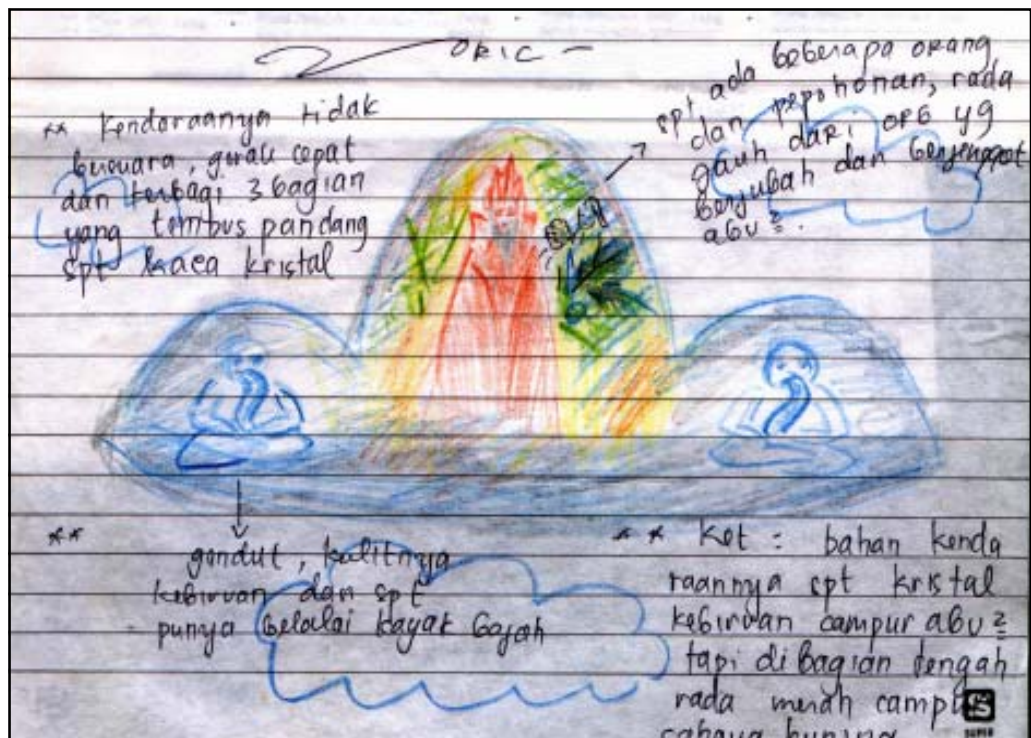 ORIC -
** Kendaraanya tidak
bersuara, gerak cepat
dan terbagi 3 bagian
yang tembus pandang
spt kaca kristal
spt ada beberapa orang
dan pepohonan, rada
jauh dari org yg
berjubah dan berjenggot
abu2.
**
gendut, kulitnya
kebiruan dan spt
punya belalai kayak Gajah
** Ket : bahan kenda
raannya spt kristal
kebiruan campur abu2
tapi di bagian tengah
rada merah campur
cahaya kuning
S